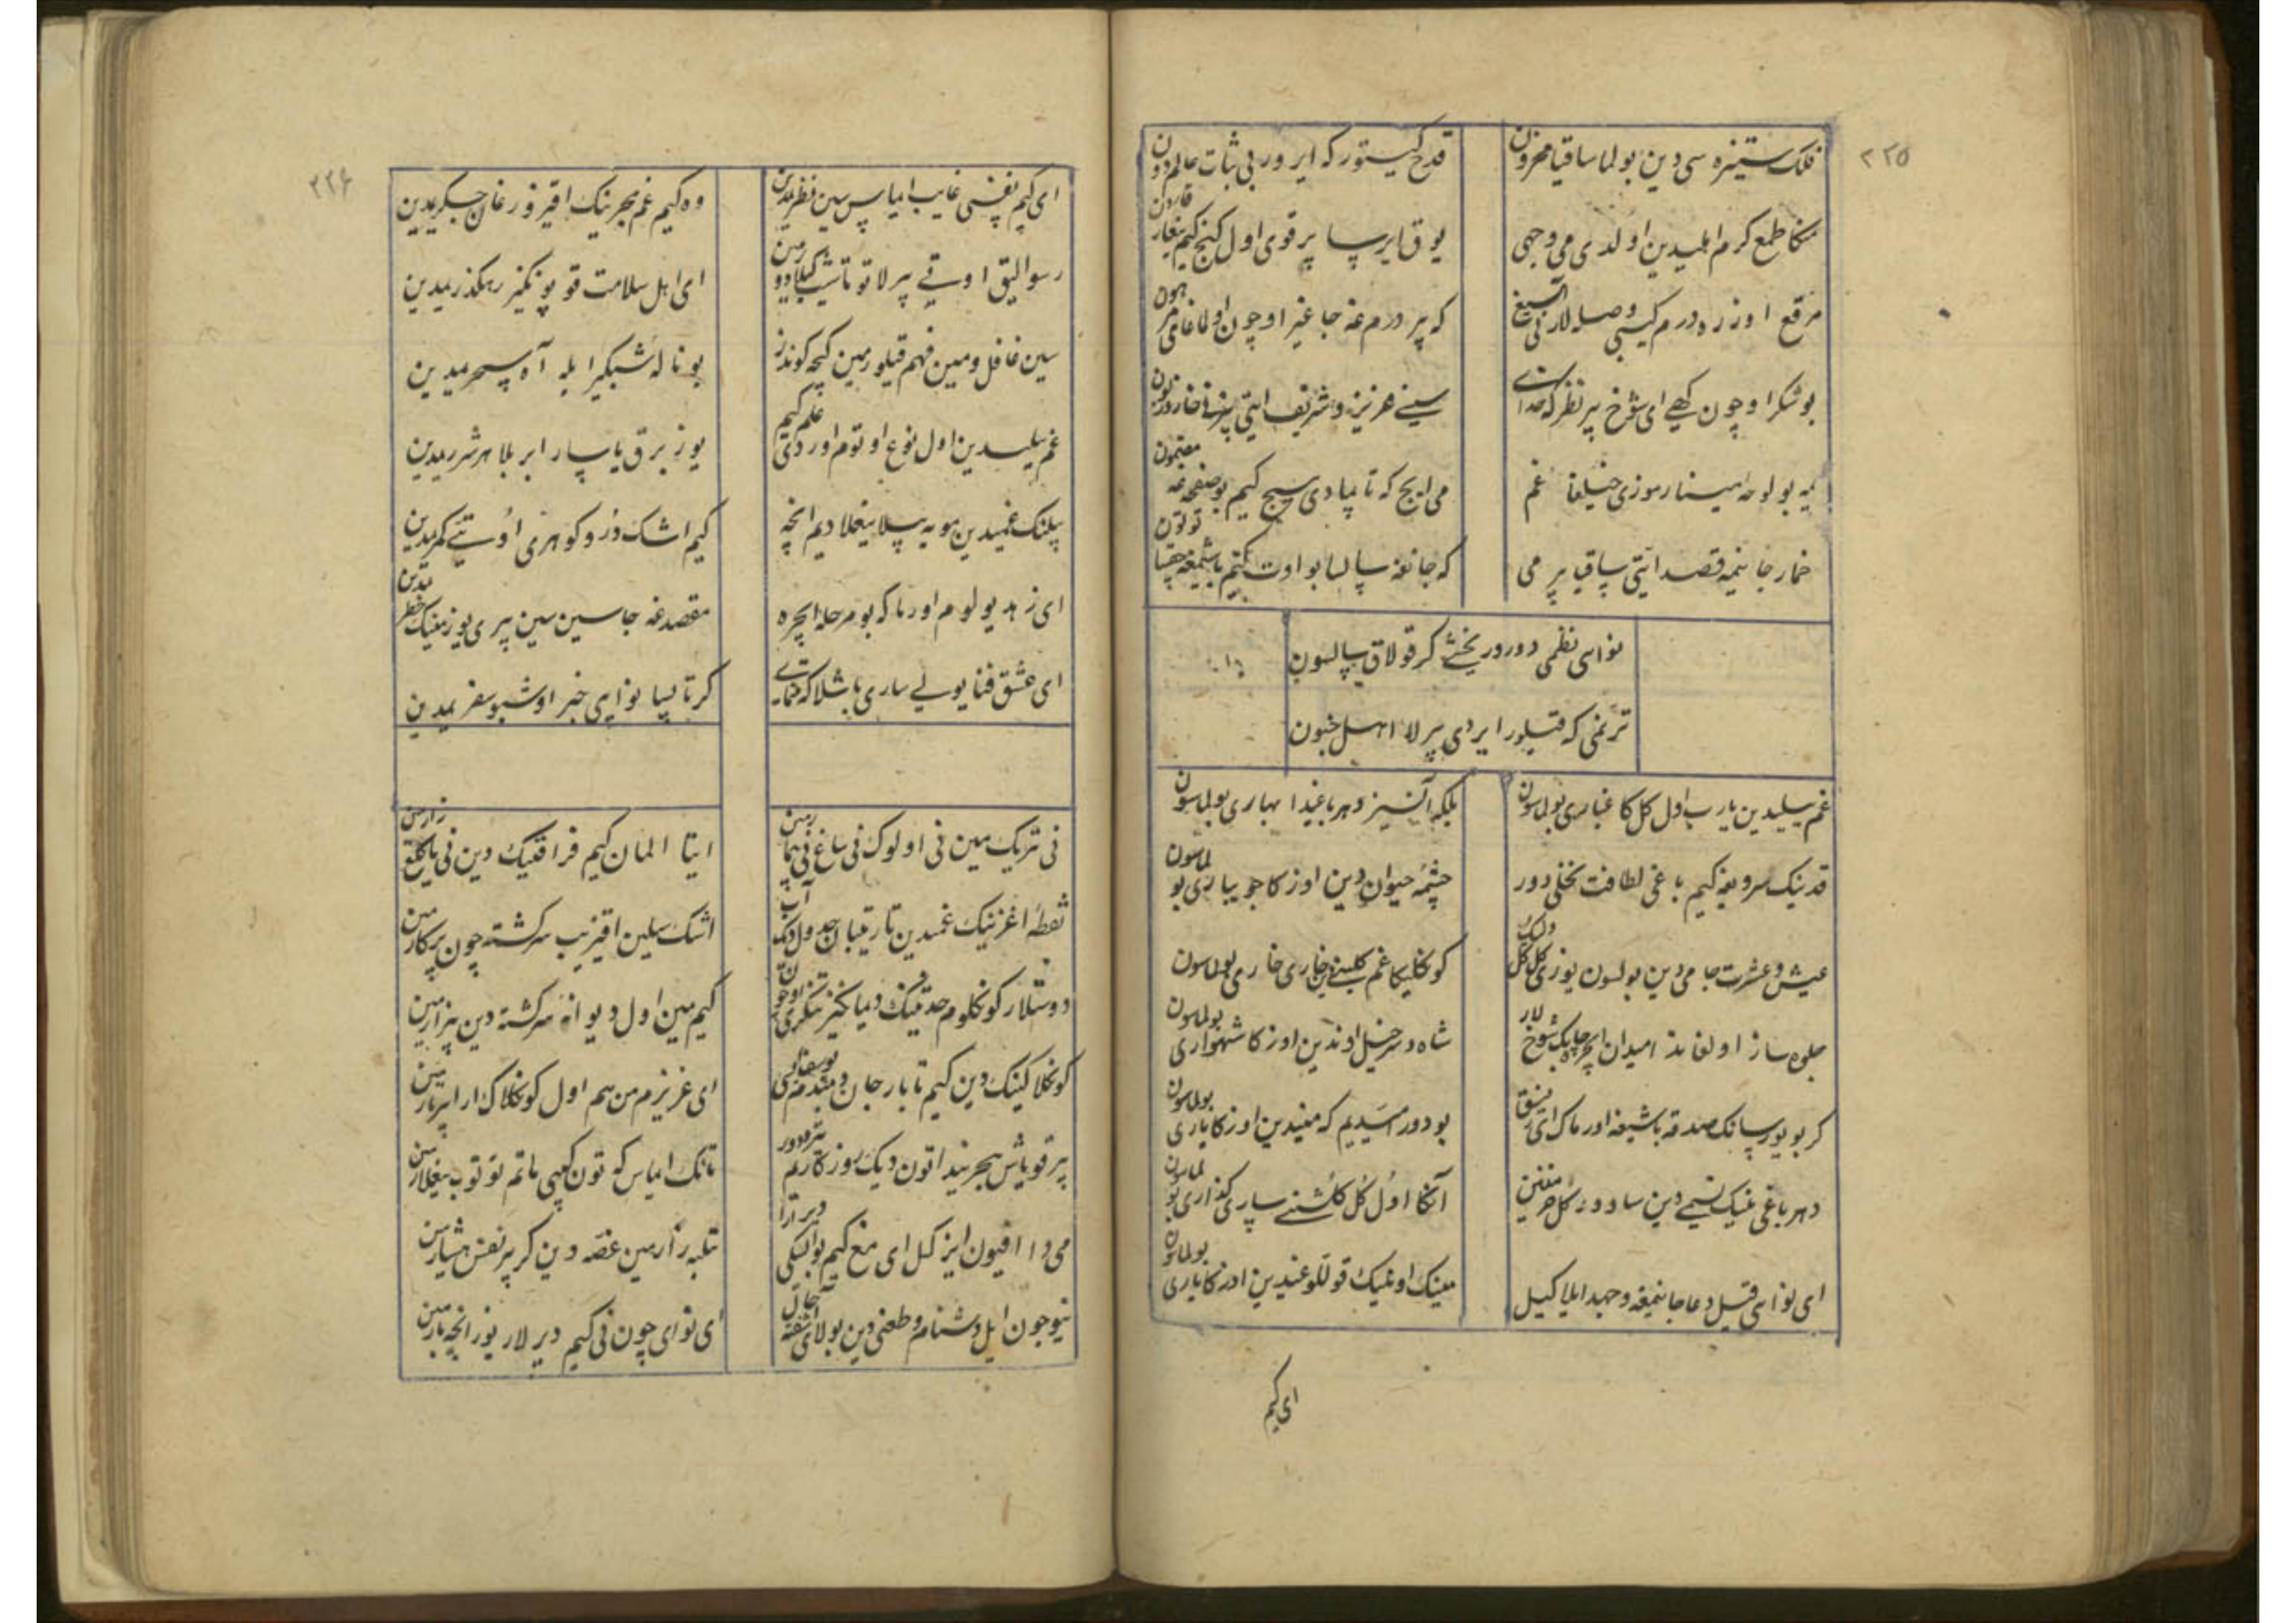 ٢٢٥
فلک ستیزه سی دین بولما ساقیا محزون
قدح کیتور که ایرور بی ثبات عالم دون
منکا طمع کرم اهلیدین اولدی می وجهی
یوق ایرسا بیر قوی اول کنج کیم ... قارون
مرقع اوزره درم کیبی وصله لار نی
که بیر درم غه جاغیر اوچون
بو شکر اوچون کهی ای شوخ بیر نظر که خدای
سینی عزیز و شریف ایتی بیزنی خار و زبون
نیه بو لوحه
می ایچ که تاپمادی هیچ کیم بو صفحه غه مضمون
خمار جانیمه قصد ایتی ساقیا بیر می
که جانغه سالسا بو اوت
نوایی نظمی دورور یخشی کر قولاق سالسون
ترنمی که قیلور ایردی بیرلا اهل جنون
غم ییلیدین یارب اول کل کا غباری بولماسون
بلکه آنسیز دهر باغیدا بهاری بولماسون
قدینک سرویغه کیم باغی لطافت نخلی دور
چشمه حیوان دین اوزکا جویباری بولماسون
عیش و عشرت جامی دین بولسون یوزی کل کل ولیک
کونکلیکا غم کلبنی نینک خاری خاری بولماسون
جلوه ساز اولغاندا میدان ایچره چابک شوخ لار
شاه و سرخیل اوندین اوزکا شهسواری بولماسون
کر بو یوز سانک صدقه باشیغه اورماک ای رفیق
بو دور امیدیم که میندین اوزکا یاری بولماسون
دهر باغی نینک نسیمی دین ساوورور کل خرمنین
آنکا اول کل کلشنی ساری کذاری بولماسون
ای نوایی قیل دعا جانیمغه و جهد ایلا کیل
مینک اونینک قوللوغیدین اوزکا یاری بولماسون
ای کیم
٢٢۶
ای کیم نفسی غایب ایماس سین نظریمدین
وه کیم غم هجرینک اقیزور قان جکریمدین
رسوالیق اوقی بیرلا توتاشیب کیلادورمین
ای اهل سلامت قوپونکیز رهکذریمدین
سین غافل و مین فهم قیلورمین کیچه کوندوز
بو ناله شبکیر ایله آه سحریمدین
غم ییلیدین اول نوع اوتوم اوردی علم کیم
یوز برق یاسار ابر بلا هر شرریمدین
بیلنک غمیدین مویه بیلا ییغلادیم انچه
کیم اشک در و کوهری اوتی کمریمدین
ای زهد یولوم اورما که بو مرحله ایچره
مقصد غه جاسین سین بیری یوز مینک خطریمدین
ای عشق فنا یولی ساری باشلا که
کر تاپسا نوایی خبر اوشبو سفریمدین
نی تریک مین نی اولوک نی ساغ نی بیمارمین
ایتا المان کیم فراقینک دین نی یانکلیغ زارمین
نقطه اغزینک غمیدین تارتیبان جدول دیک آب
اشک سیلین اقیزیب سرکشته چون پرکارمین
دوستلار کونکلوم حدیثینک دیمانکیز تنکری اوچون
کیم مین اول دیوانه سرکشته دین بیزارمین
کونکلاکینک دین کیم تاپار جان دمبدم یوسف ایسی
ای عزیزم من هم اول کونکلاک ارا بیر تارمین
بیر قویاش هجریندا تون دیک روزکاریم تیره دور
تانک ایماس که تون کیبی ماتم توتوب ییغلارمین
می دا افیون ایز کیل ای مغ کیم بو ایسکی دیر آرا
تلبه رارمین غصه دین کر بیر نفس هشیارمین
نیوچون ایل دشنام و طعنی دین بولای آشفته حال
ای نوایی چون نی کیم دیرلار یوز انچه بارمین